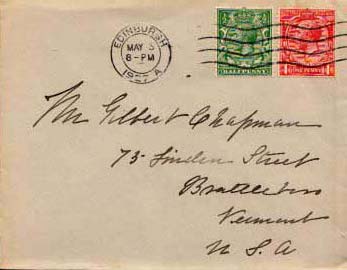 EDINBURGH
MAY 5
6-PM
1927 A
HALFPENNY
ONE PENNY
Mr Gilbert Chapman
73 Linden Street
Brattleboro
Vermont
U S A